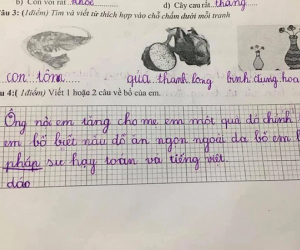 b) Con voi rất khỏe
d) Cây cau rất thẳng
Câu 3: (1điểm) Tìm và viết từ thích hợp vào chỗ chấm dưới mỗi tranh
con tôm
quả thanh long
bình đựng hoa
u 4:( 1điểm) Viết 1 hoặc 2 câu về bố của em.
Ông nội em tăng cho mẹ em một quả đó chính
em bố biết nấu đồ ăn ngon ngoài da bố em
pháp sư hay toán và tiếng việt
dáo